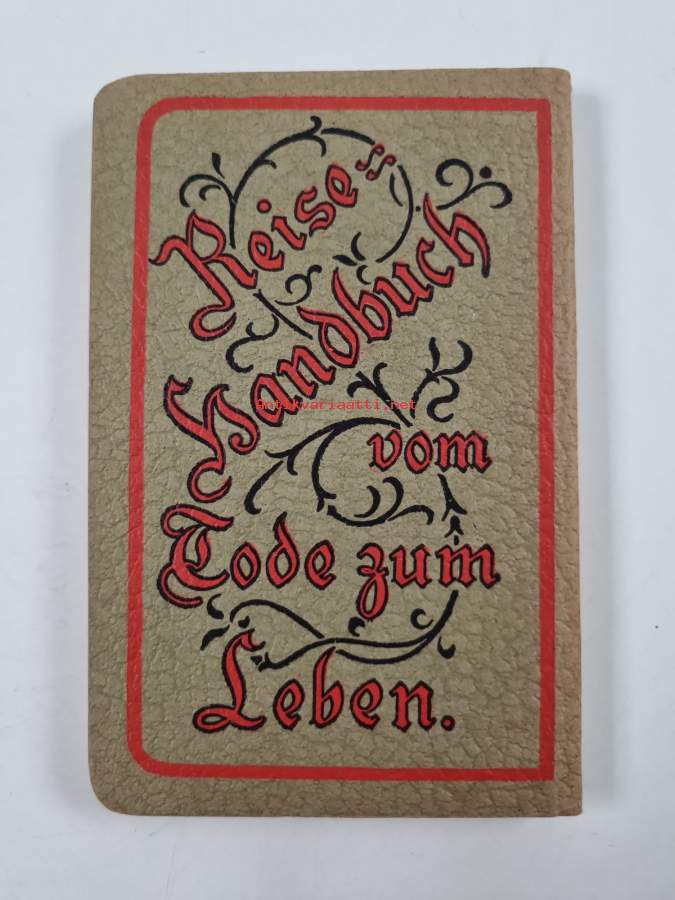 Reise=
Handbuch
Antikvariaatti.net
vom
Tode zum
Leben.